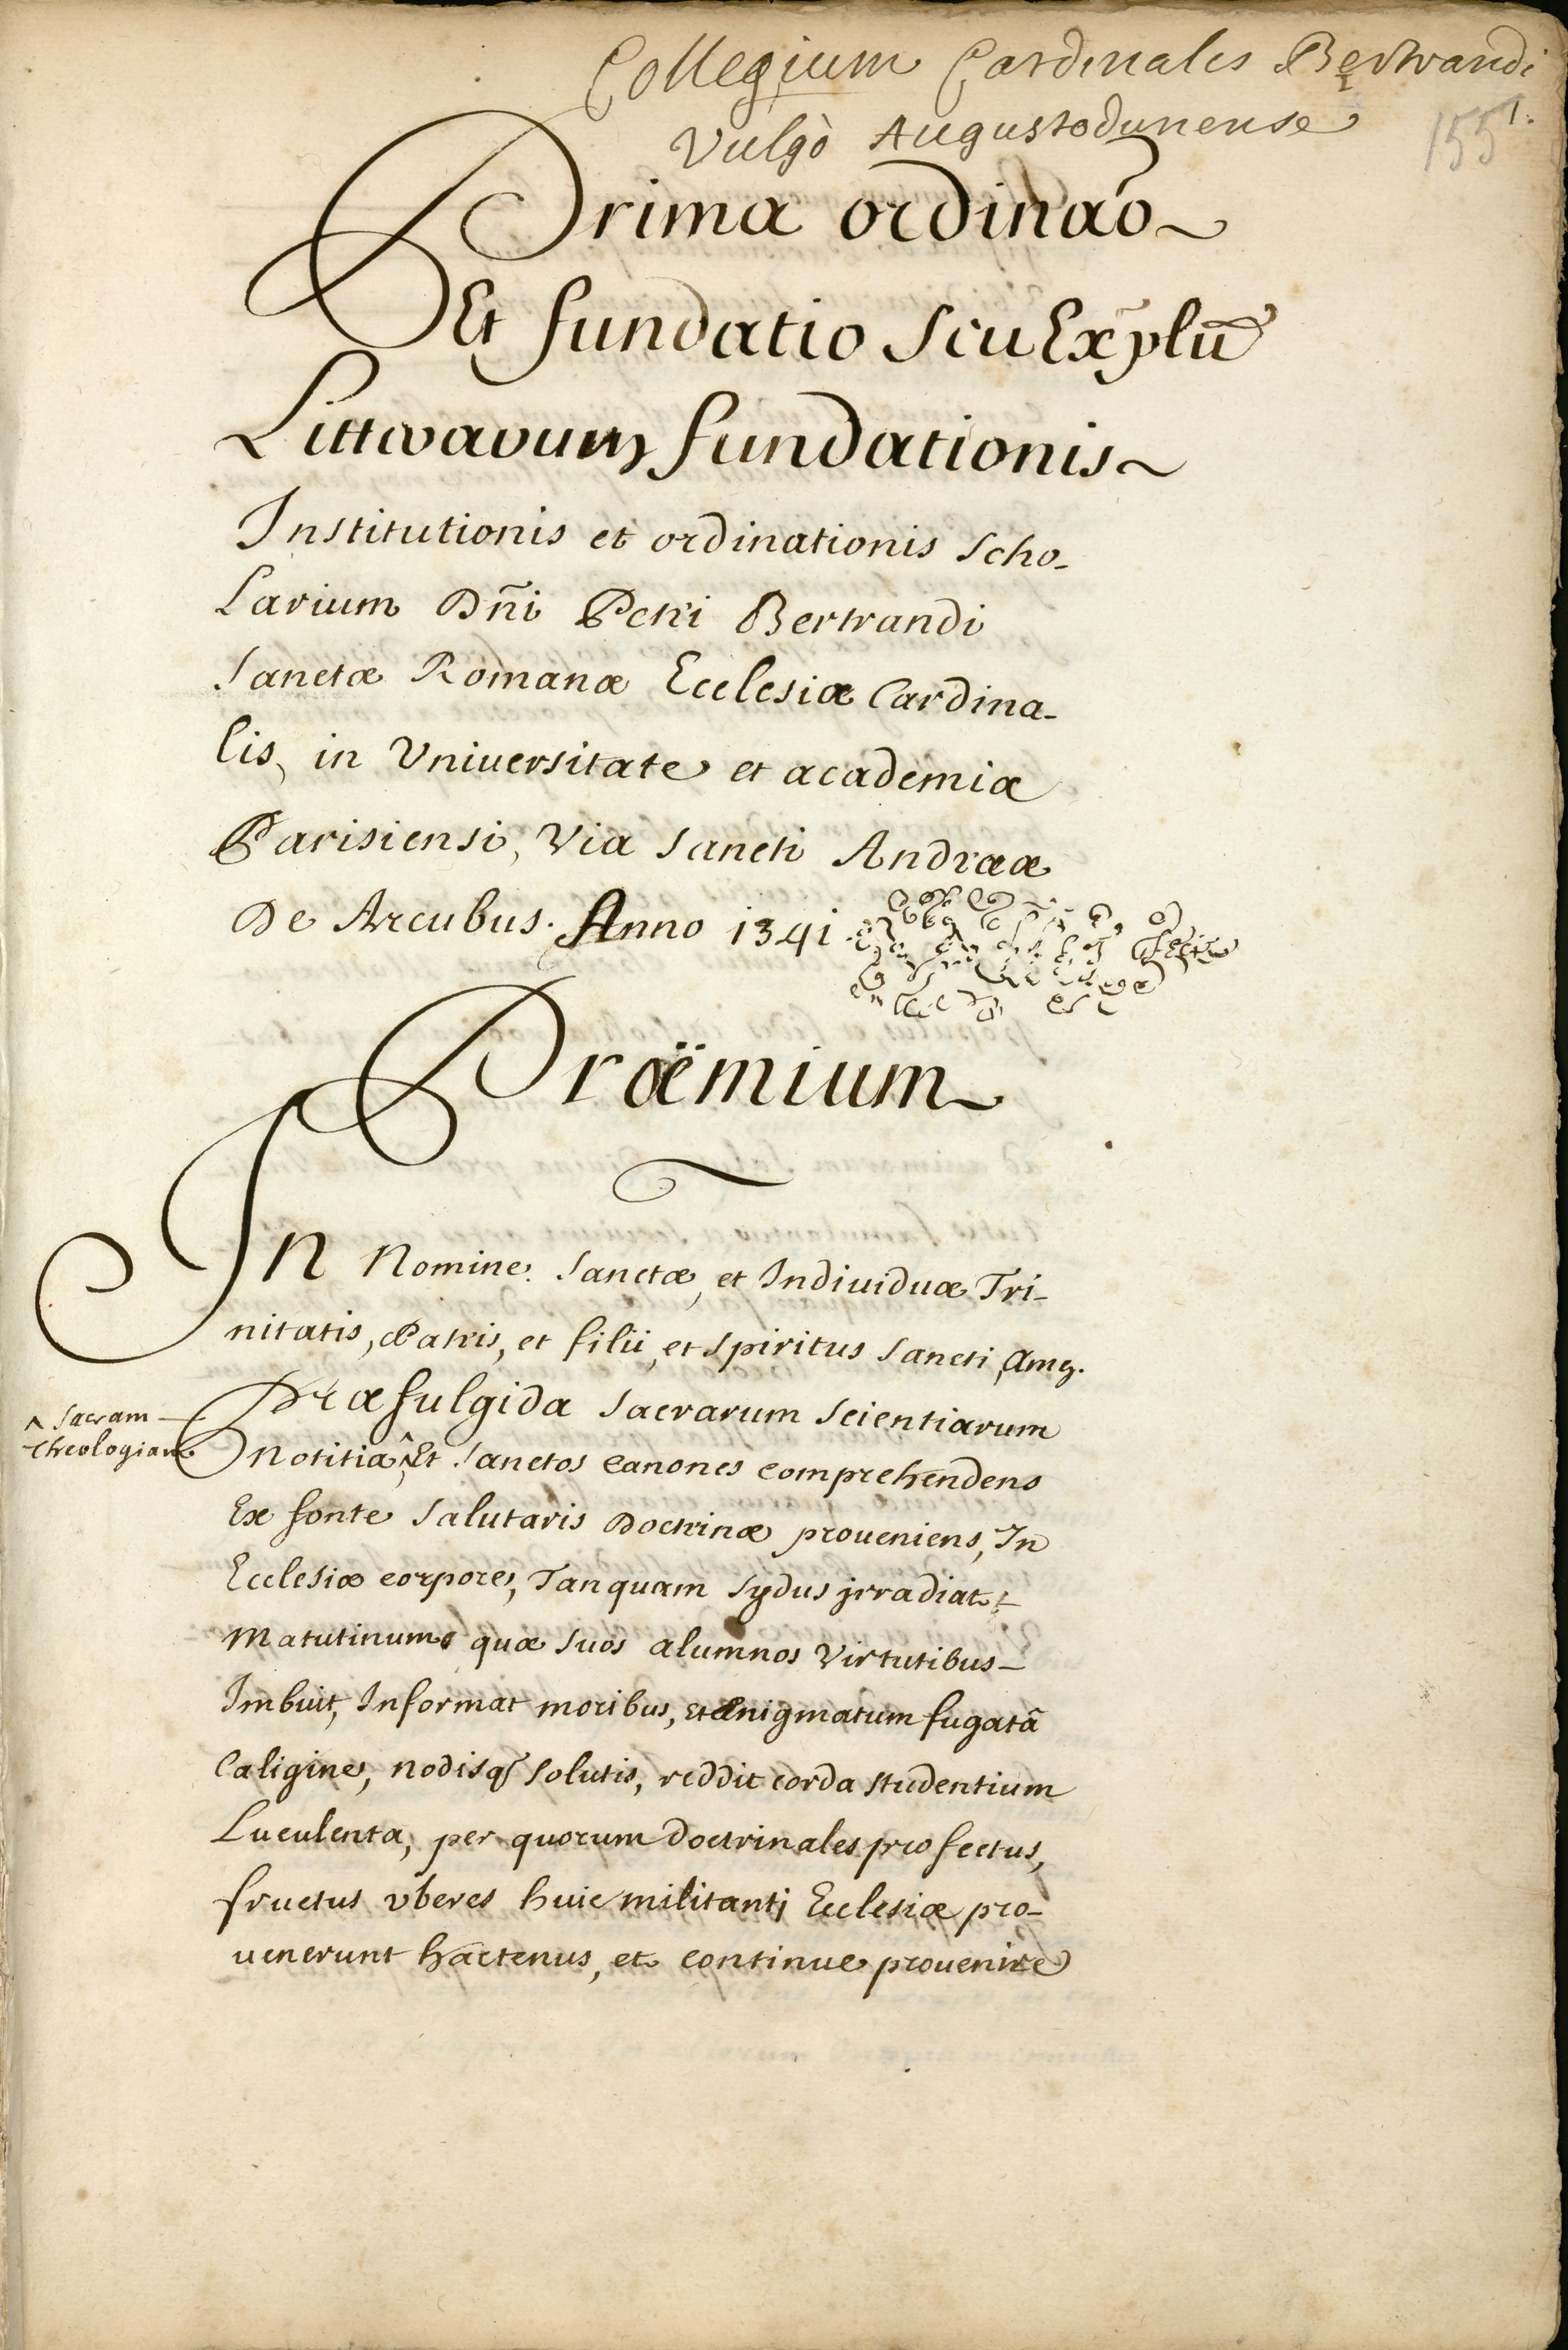 Collegium Cardinales Bertrandi
Vulgò Augustodunense
155 1.
Prima ordinaõ
Et fundatio seu Exp̃lũ
Litterarum fundationis
Institutionis et ordinationis Scho-
Larium Dñi Petri Bertrandi
Sanctæ Romanæ Ecclesiæ Cardina-
lis, in Vniuersitate et academiæ
Parisiensi, Via Sancti Andrææ
De Arcubus. Anno 1341.
Proëmium
In Nomine Sanctæ, et Indiuiduæ Tri-
nitatis, Patris, et filii, et Spiritus Sancti, Amen.
Præfulgida Sacrarum Scientiarum
^ Sacram
Theologiam
Notitia^ Et Sanctos canones comprehendens
Ex fonte Salutaris Doctrinæ proueniens, In
Ecclesiæ corpore, Tanquam Sydus jrradiat
Matutinum quæ Suos alumnos Virtutibus
Imbuit, Informat moribus, et Ænigmatum fugatâ
Caligine, nodisq3 Solutis, reddit corda studentium
Luculenta, per quorum Doctrinales profectus,
fructus vberes huic militantj Ecclesiæ pro-
uenerunt hactenus, et continue prouenire